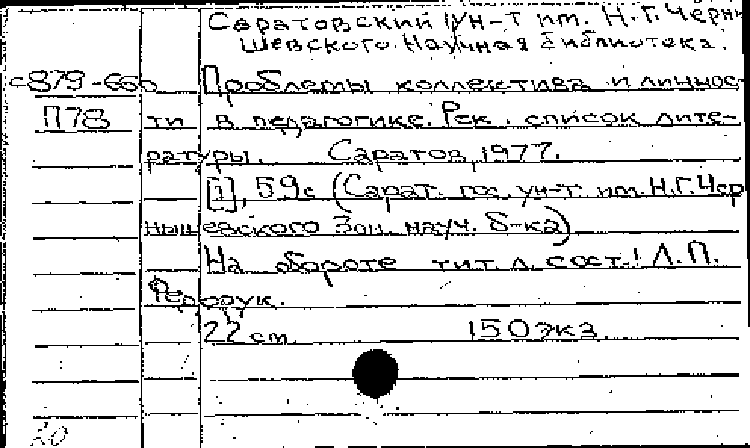 Саратовский ун-т им. Н.Г. Черны
шевского. Научная библиотека.
с879-666 Проблемы коллектива и личнос-
П78 ти в педагогике. Рек. список лите-
ратуры. Саратов, 1977.
[1], 59с (Сарат. гос. ун-т. им. Н.Г. Чер
нышевского Зон. науч. б-ка)
На обороте тит. л. сост.: Л.П.
22 см 150 экз
20